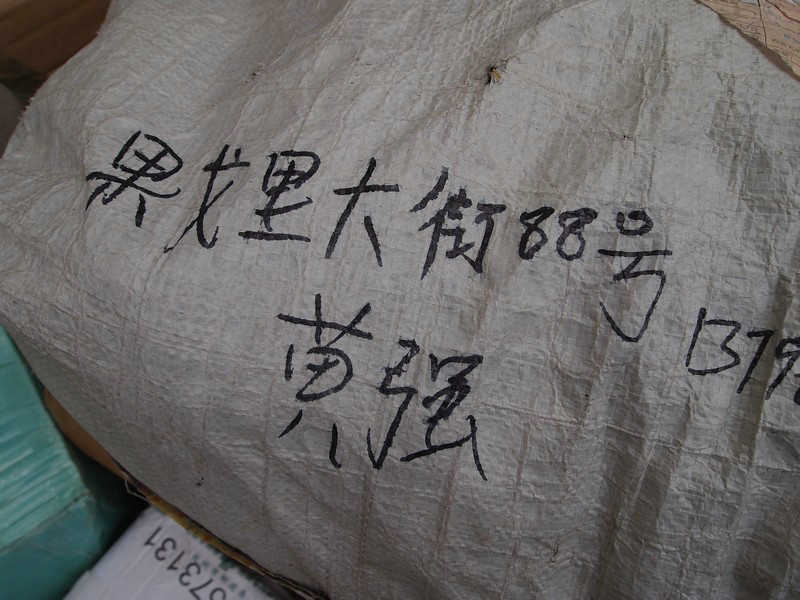 果戈里大街88号
黄强
1379
73131